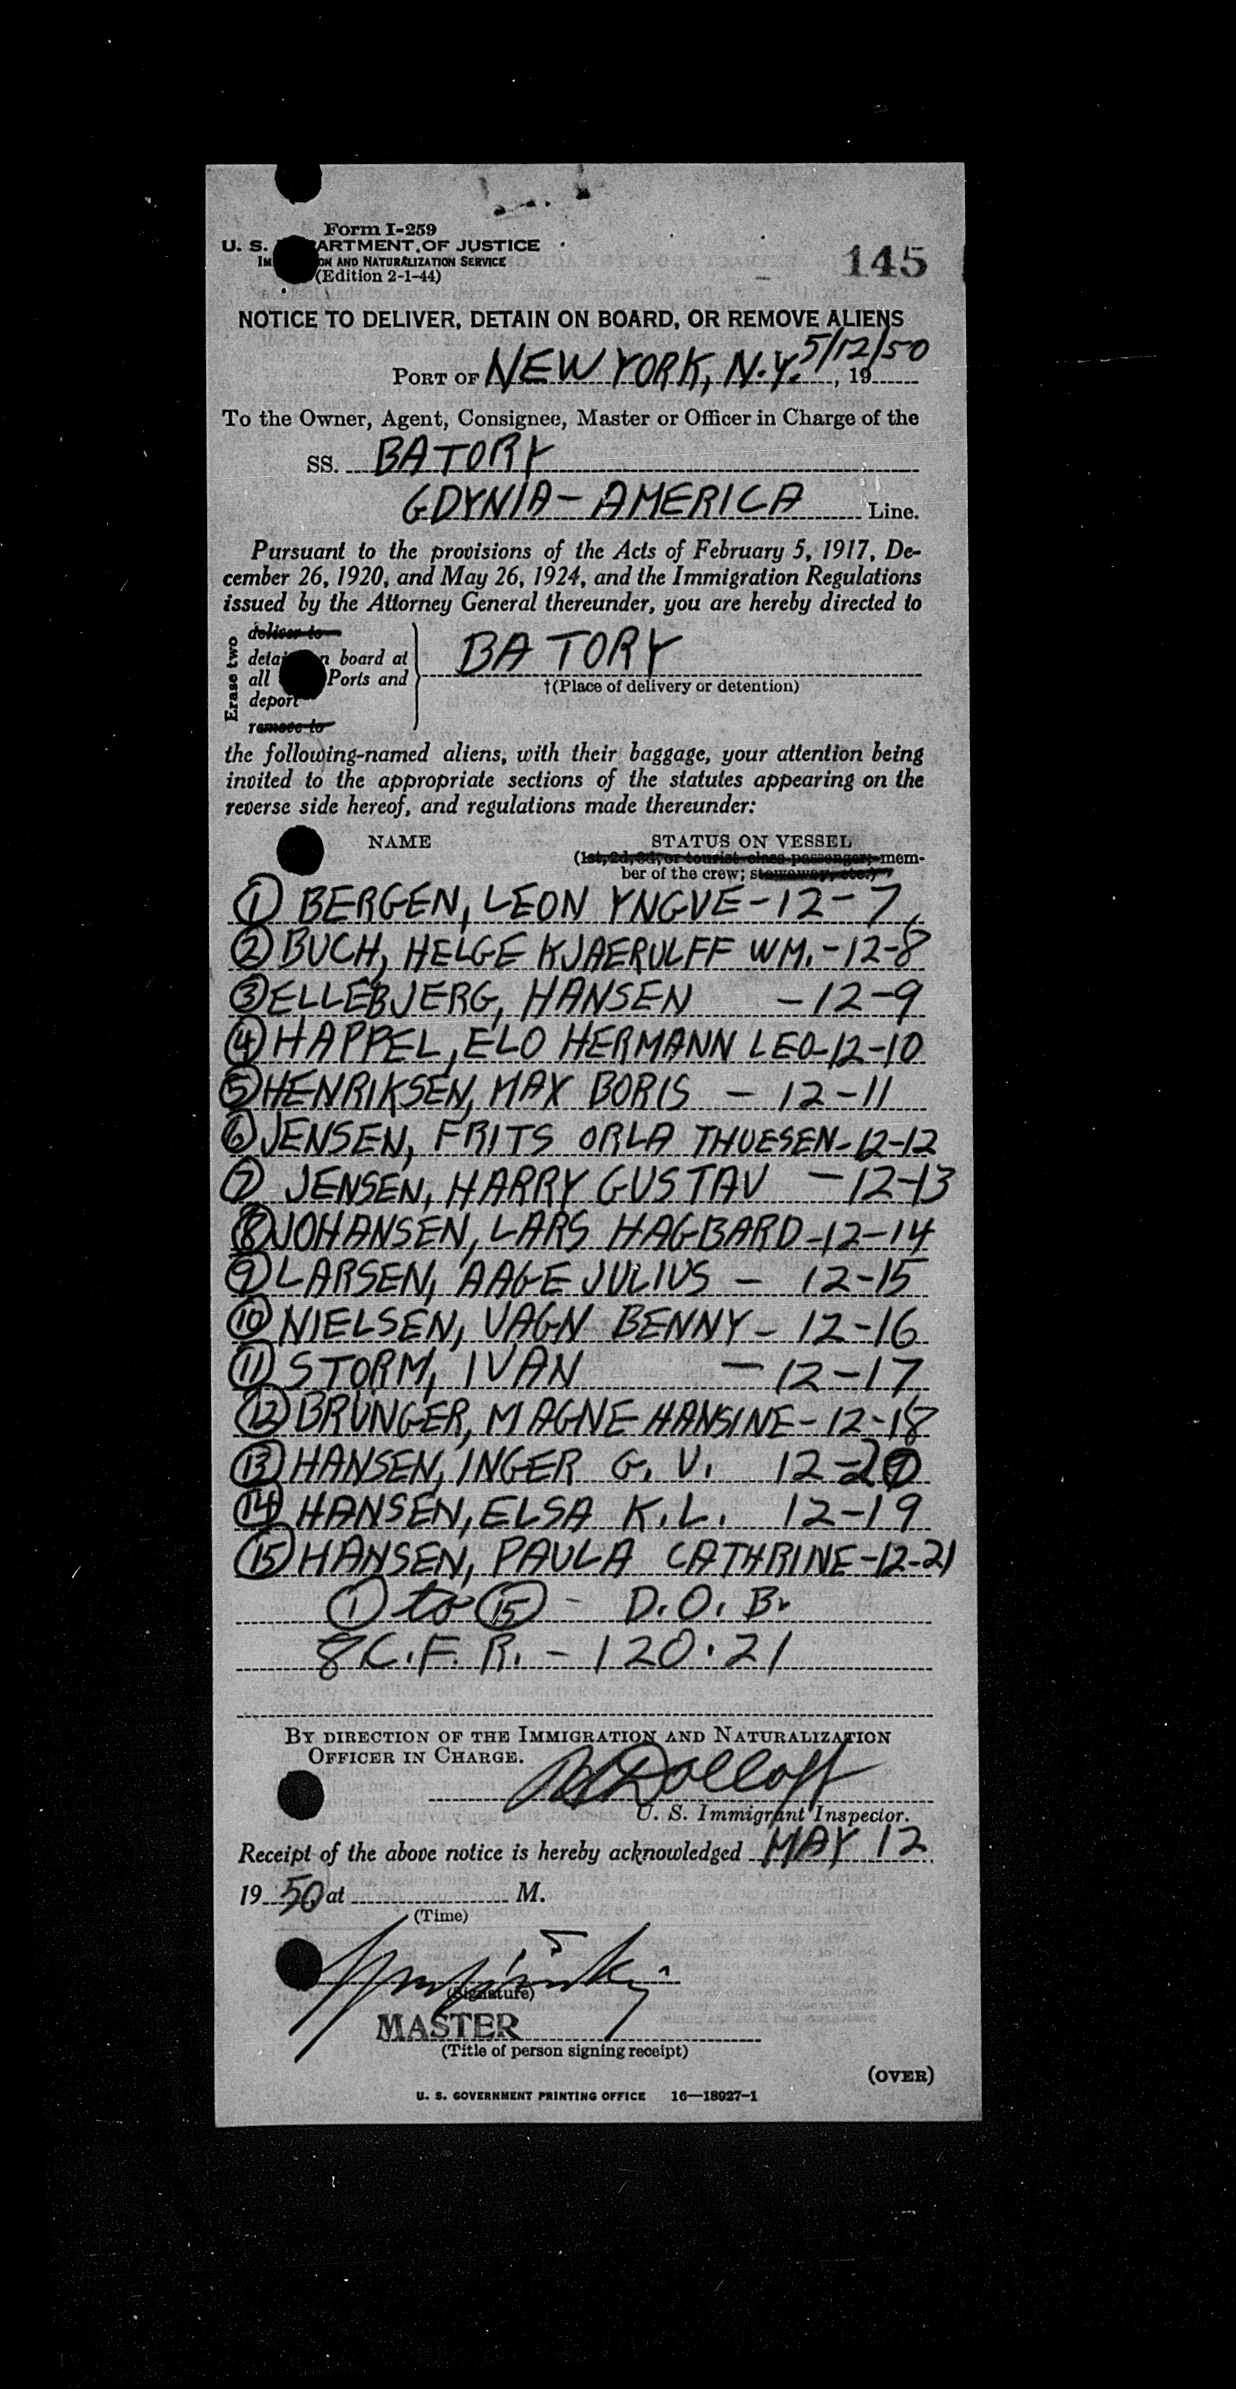 Form I-259
U. S. DEPARTMENT OF JUSTICE
IMMIGRATION AND NATURALIZATION SERVICE
(Edition 2-1-44)
145
NOTICE TO DELIVER, DETAIN ON BOARD, OR REMOVE ALIENS
PORT OF NEW YORK, N.Y. 5/12/50, 19
To the Owner, Agent, Consignee, Master or Officer in Charge of the
SS. BATORY
GDYNIA-AMERICA Line.
Pursuant to the provisions of the Acts of February 5, 1917, De-
cember 26, 1920, and May 26, 1924, and the Immigration Regulations
issued by the Attorney General thereunder, you are hereby directed to
Erase two
deliver to
detain on board at
all Ports and
deport
remove to
BATORY
†(Place of delivery or detention)
the following-named aliens, with their baggage, your attention being
invited to the appropriate sections of the statutes appearing on the
reverse side hereof, and regulations made thereunder:
NAME STATUS ON VESSEL
(1st, 2d, 3d, or tourist class passenger; mem-
ber of the crew; stowaway, etc.)
1 BERGEN, LEON YNGVE-12-7
2 BUCH, HELGE KJAERULFF WM.-12-8
3 ELLEBJERG, HANSEN -12-9
4 HAPPEL, ELO HERMANN LEO-12-10
5 HENRIKSEN, MAX BORIS - 12-11
6 JENSEN, FRITS ORLA THUESEN-12-12
7 JENSEN, HARRY GUSTAV -12-13
8 JOHANSEN, LARS HAGBARD-12-14
9 LARSEN, AAGE JULIUS - 12-15
10 NIELSEN, VAGN BENNY- 12-16
11 STORM, IVAN -12-17
12 BRUNGER, MAGNE HANSINE-12-18
13 HANSEN, INGER G. V. 12-20
14 HANSEN, ELSA K.L. 12-19
15 HANSEN, PAULA CATHRINE-12-21
1 to 15 - D.O.B.
8 C.F.R. - 120.21
BY DIRECTION OF THE IMMIGRATION AND NATURALIZATION
OFFICER IN CHARGE.
Dolloff
U. S. Immigrant Inspector.
Receipt of the above notice is hereby acknowledged MAY 12
19 50 at M.
(Time)
(Signature)
MASTER
(Title of person signing receipt)
(OVER)
U. S. GOVERNMENT PRINTING OFFICE 16—18927-1